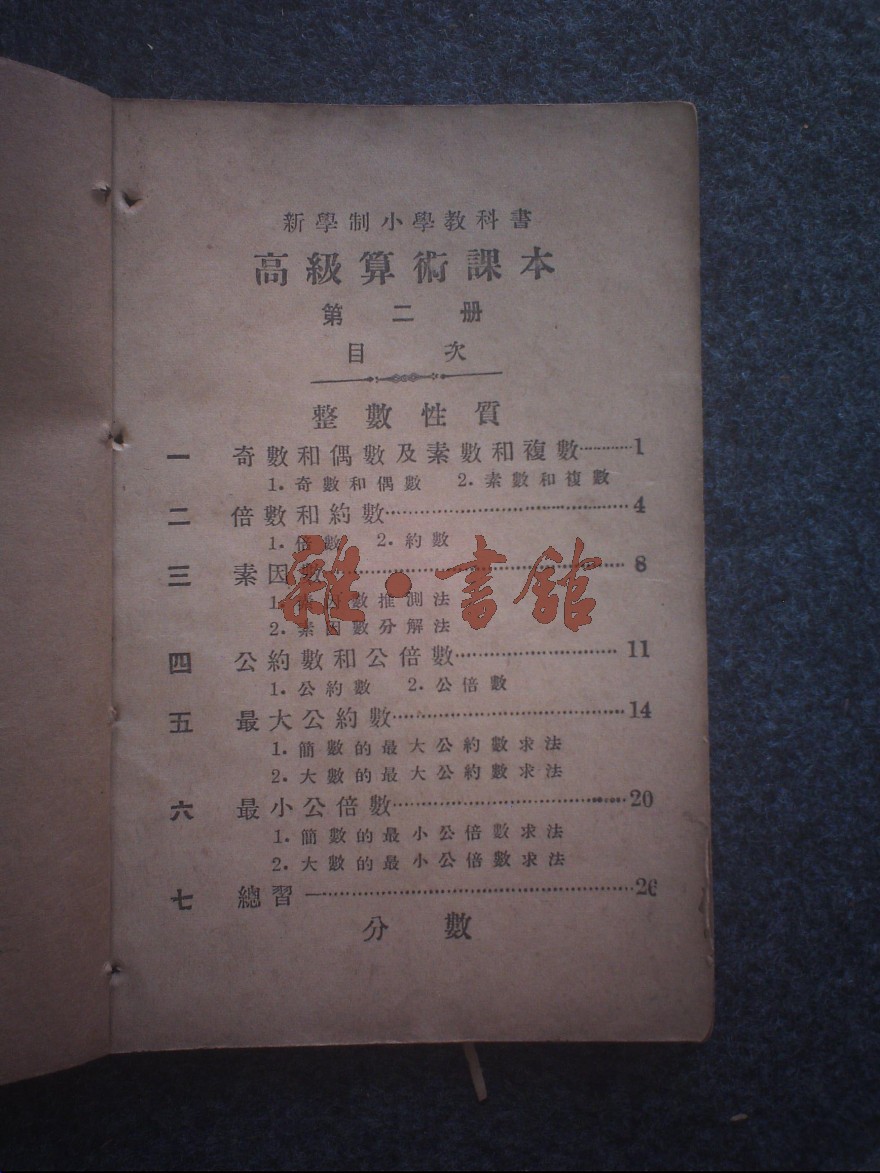 新學制小學教科書
高級算術課本
第二册
目次
整數性質
一 奇數和偶數及素數和複數………1
1. 奇數和偶數 2. 素數和複數
二 倍數和約數………4
1. 倍數 2. 約數
三 素因數………8
1. 素因數推測法
2. 素因數分解法
四 公約數和公倍數………11
1. 公約數 2. 公倍數
五 最大公約數………14
1. 簡數的最大公約數求法
2. 大數的最大公約數求法
六 最小公倍數………20
1. 簡數的最小公倍數求法
2. 大數的最小公倍數求法
七 總習………26
分數
雜·書館